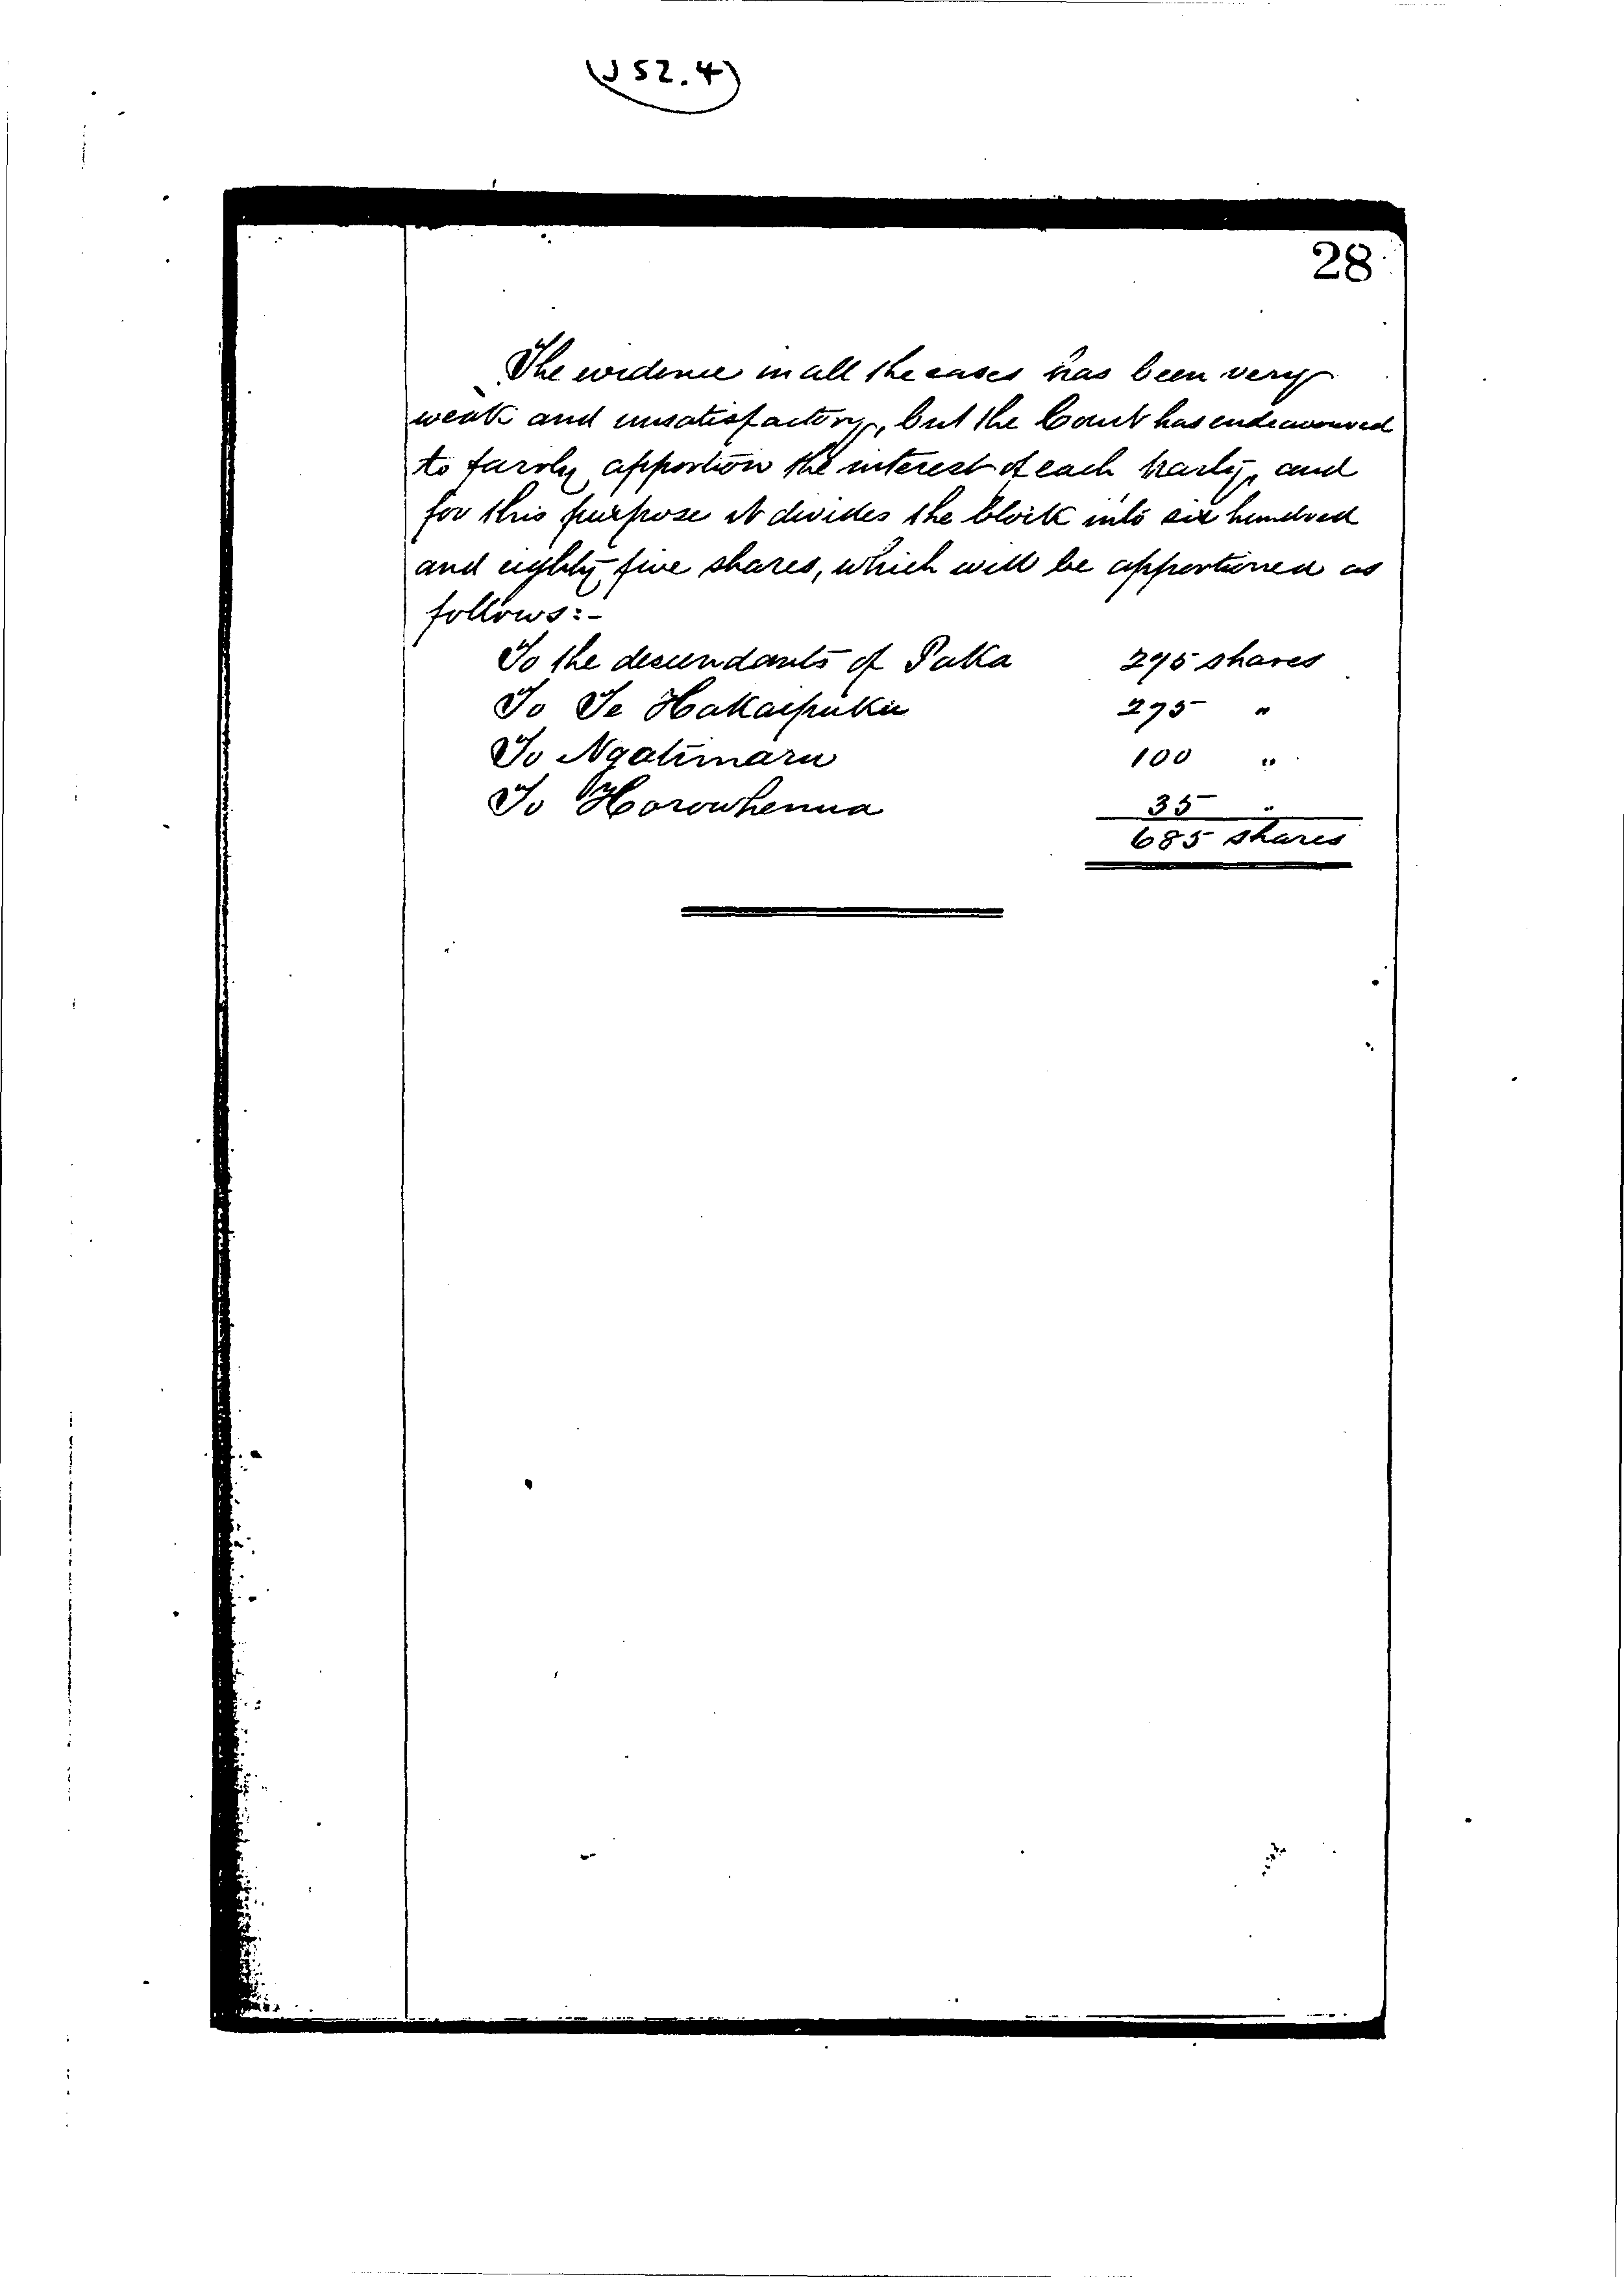 (J 52.4)
28
The evidence in all the cases has been very
weak and unsatisfactory, but the Court has endeavoured
to fairly apportion the interest of each party, and
for this purpose it divides the block into six hundred
and eighty five shares, which will be apportioned as
follows:-
To the descendants of Paka 275 shares
To Te Hakaipuku 275 "
To Ngatimaru 100 "
To Horowhenua 35 "
685 shares